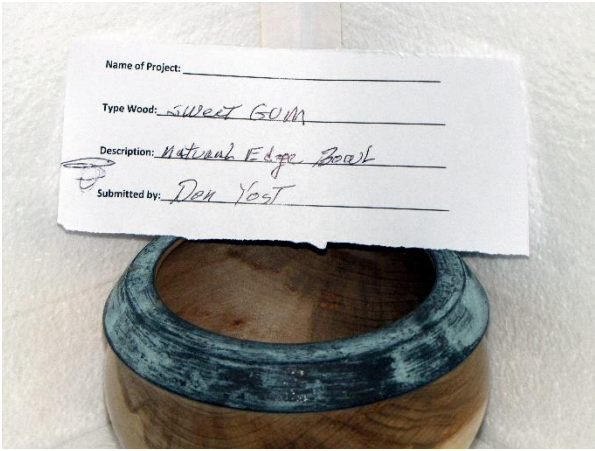 Name of Project:
Type Wood: Sweet Gum
Description: Natural Edge Bowl
Submitted by: Don Yost